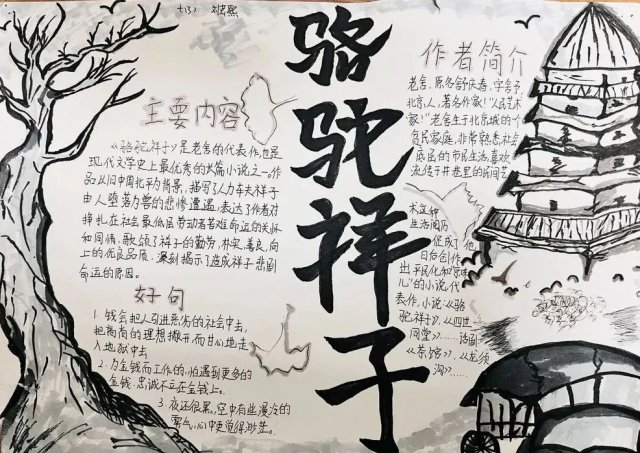 七(3)
骆驼祥子
主要内容
《骆驼祥子》是老舍的代表作,也是
现代文学史上最优秀的长篇小说之一。作
品从旧中国北平为背景,描写了人力车夫祥子
由人堕落为兽的悲惨遭遇,表达了作者对
挣扎在社会最低层劳动者苦难命运的关怀
和同情,歌颂了祥子的勤劳、朴实、善良、向
上的优良品质,深刻揭示了造成祥子悲剧
命运的原因。
好句
1.钱会把人引进恶劣的社会中去,
把高尚的理想撇开,而甘心地走
入地狱中去
2.为金钱而工作的,怕遇到更多的
金钱,忠诚不立在金钱上。
3.夜还很黑,空中有些湿冷的
雾气,心中更觉得渺茫。
作者简介
老舍,原名舒庆春,字舍予,
北京人,著名作家!"人民艺术
家!"老舍生于北京城的一个
贫民家庭,非常熟悉社会
底层的市民生活,喜欢
流传于井巷里的民间艺
术,这种
生活阅历
促成了他
日后创作
出平民化和"京味
儿"的小说,代
表作,小说:《骆
驼祥子》、《四世
同堂》……话剧
《茶馆》、《龙须
沟》……